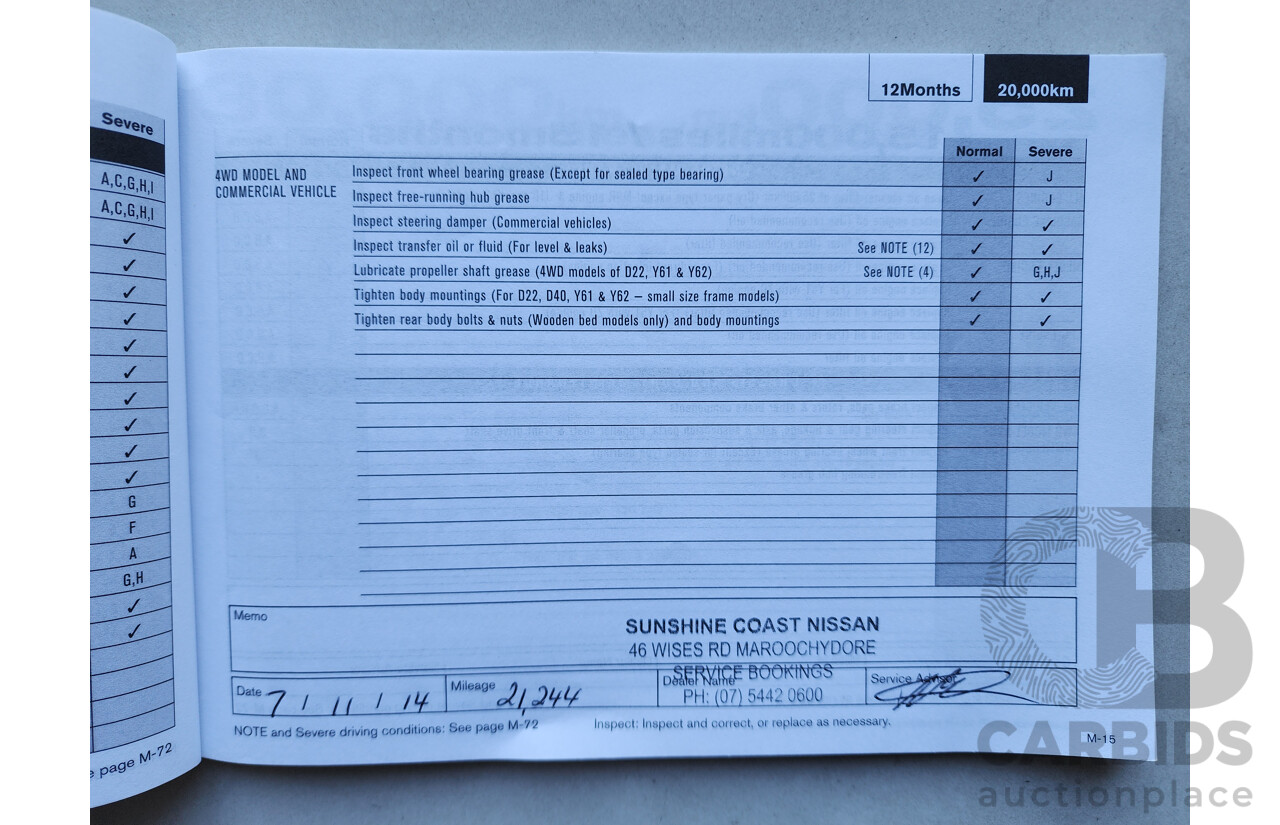 Severe
A,C,G,H,I
A,C,G,H,I
✓
✓
✓
✓
✓
✓
✓
✓
✓
✓
G
F
A
G,H
✓
✓
page M-72
12Months 20,000km
Normal Severe
4WD MODEL AND COMMERCIAL VEHICLE
Inspect front wheel bearing grease (Except for sealed type bearing) ✓ J
Inspect free-running hub grease ✓ J
Inspect steering damper (Commercial vehicles) ✓ ✓
Inspect transfer oil or fluid (For level & leaks) See NOTE (12) ✓ ✓
Lubricate propeller shaft grease (4WD models of D22, Y61 & Y62) See NOTE (4) ✓ G,H,J
Tighten body mountings (For D22, D40, Y61 & Y62 – small size frame models) ✓ ✓
Tighten rear body bolts & nuts (Wooden bed models only) and body mountings ✓ ✓
Memo
SUNSHINE COAST NISSAN
46 WISES RD MAROOCHYDORE
SERVICE BOOKINGS
PH: (07) 5442 0600
Date 7 / 11 / 14 Mileage 21,244 Dealer Name Service Advisor
NOTE and Severe driving conditions: See page M-72 Inspect: Inspect and correct, or replace as necessary.
M-15
CB
CARBIDS
auctionplace